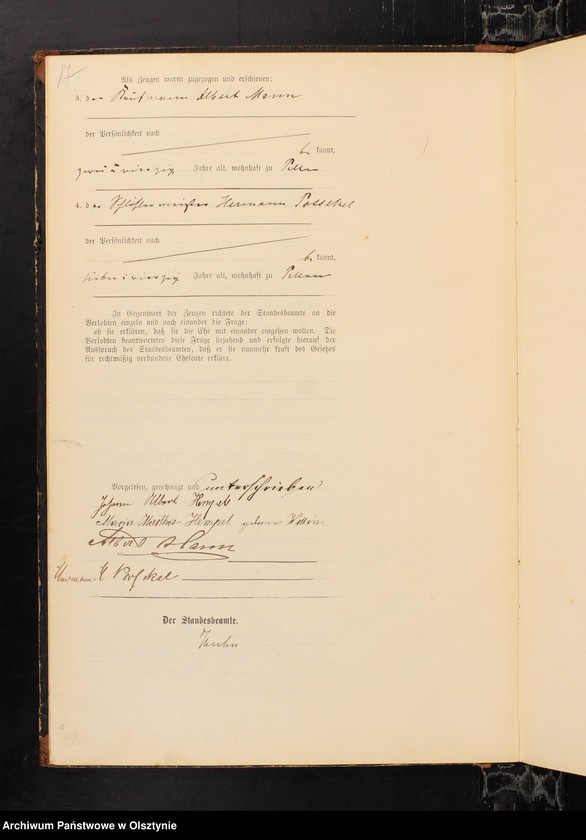 17
Als Zeugen waren zugezogen und erschienen:
3. der Kaufmann Albert Mann
der Persönlichkeit nach
be kannt,
zwei u vierzig Jahre alt, wohnhaft zu Pillau
4. der Schlossermeister Hermann
der Persönlichkeit nach
be kannt,
sieben u vierzig Jahre alt, wohnhaft zu Pillau
In Gegenwart der Zeugen richtete der Standesbeamte an die
Verlobten einzeln und nach einander die Frage:
ob sie erklären, daß sie die Ehe mit einander eingehen wollen. Die
Verlobten beantworteten diese Frage bejahend und erfolgte hierauf der
Ausspruch des Standesbeamten, daß er sie nunmehr kraft des Gesetzes
für rechtmäßig verbundene Eheleute erkläre.
Vorgelesen, genehmigt und unterschrieben
Johann Albert Hempel
Maria Hempel geborene
Albert Mann
Hermann
Der Standesbeamte.
Archiwum Państwowe w Olsztynie